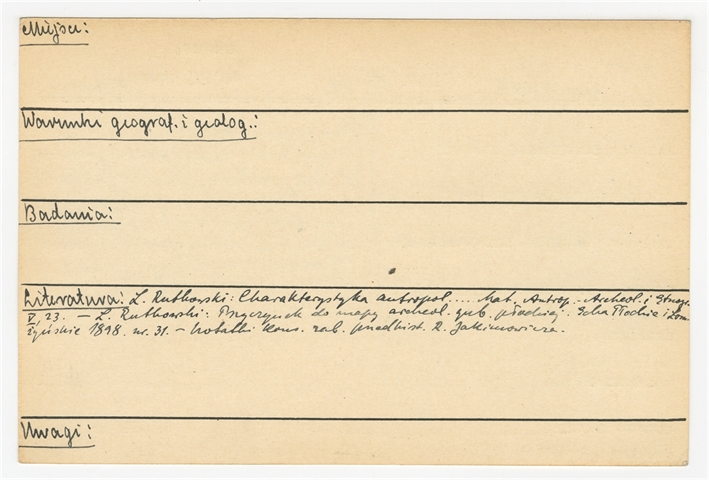 Miejsce:
Warunki geograf. i geolog.:
Badania:
Literatura: L. Rutkowski: Charakterystyka antropol.... Mat. Antrop.-Archeol. i Etnogr.
V, 23. — L. Rutkowski: Przyczynek do mapy archeol. gub. płockiej. Echa Płockie i Łom-
żyńskie 1898. nr. 31. — Notatki kons. zab. przedhist. R. Jakimowicza.
Uwagi: